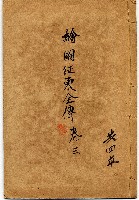 繪圖征東全傳 卷三
共四本